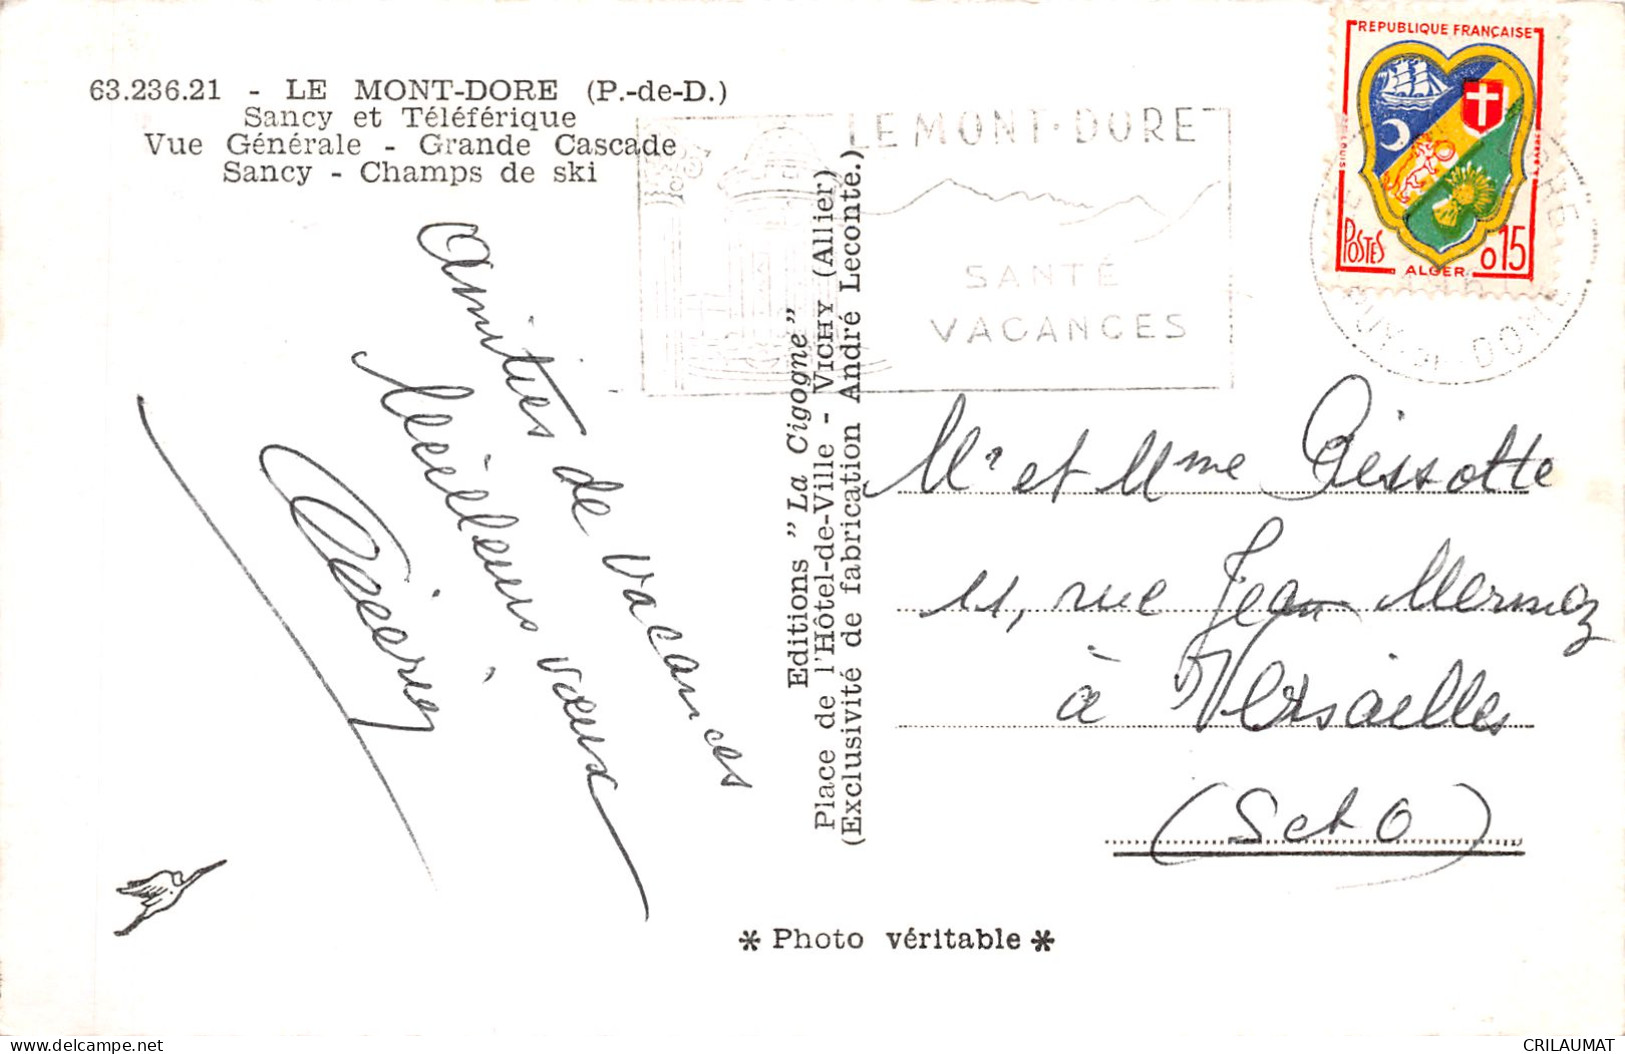 63.236.21 - LE MONT-DORE (P.-de-D.)
Sancy et Téléférique
Vue Générale - Grande Cascade
Sancy - Champs de ski
Amitiés de vacances
Meilleurs vœux
Editions "La Cigogne"
Place de l'Hôtel-de-Ville - VICHY (Allier)
(Exclusivité de fabrication André Leconte.)
LE MONT-DORE
SANTÉ
VACANCES
REPUBLIQUE FRANÇAISE
POSTES
ALGER
0,15
PUY-DE-DOME
Mr et Mme Pissotte
11, rue Jean Mermoz
à Versailles
(S et O)
* Photo véritable *
CRILAUMAT